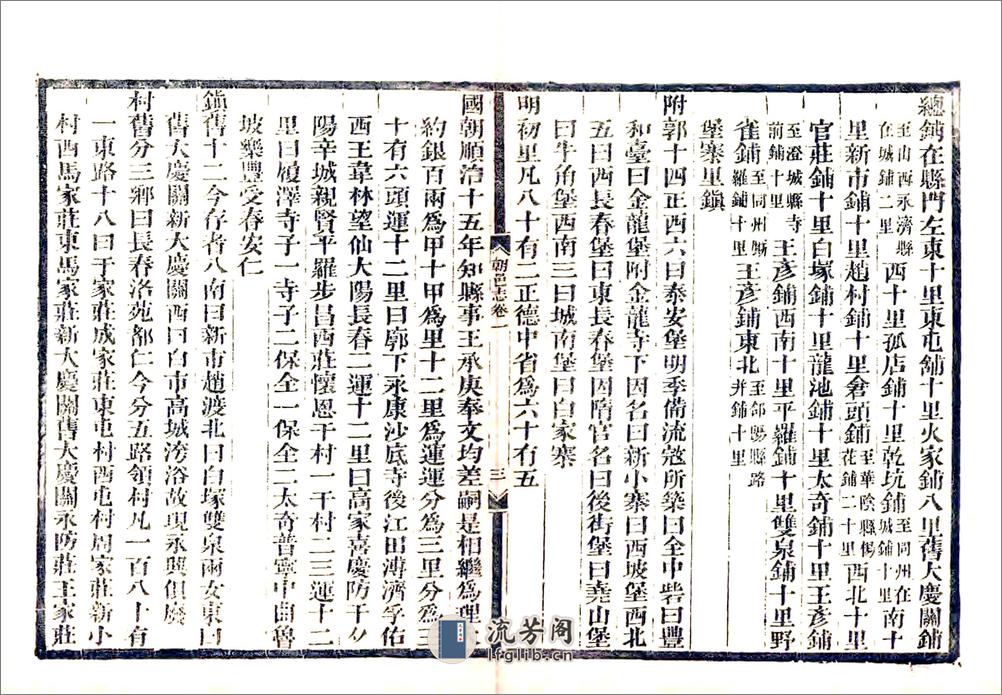 總鋪在縣門左東十里東屯鋪十里火家鋪八里舊大慶關鋪
至山西永濟縣在城鋪二里西十里孤店鋪十里乾坑鋪至同州在城鋪十里南十
里新市鋪十里趙村鋪十里倉頭鋪至華陰縣楊花鋪二十里西北十里
官莊鋪十里白塚鋪十里龍池鋪十里太奇鋪十里王彥鋪
至澄城縣寺前鋪十里王彥鋪西南十里平羅鋪十里雙泉鋪十里野
雀鋪至同州斷羅鋪十里王彥鋪東北至郃陽縣路井鋪十里
堡寨里鎮
附郭十四正西六曰泰安堡明季備流寇所築曰全中砦曰豐
和臺曰金龍堡附金龍寺下因名曰新小寨曰西坡堡西北
五曰西長春堡曰東長春堡因隋官名曰後街堡曰堯山堡
曰牛角堡西南三曰城南堡曰白家寨
明初里凡八十有二正德中省爲六十有五
朝邑志卷一 三
國朝順治十五年知縣事王承庚奉文均差嗣是相繼爲理
約銀百兩爲甲十甲爲里十二里爲運運分爲三里分爲三
十有六頭運十二里曰廓下永康沙底寺後江田溥濟孚佑
西王韋林望仙大陽長春二運十二里曰高家喜慶防干
陽辛城親賢平羅步昌西莊懷恩干村一干村二三運十二
里曰履澤寺子一寺子二保全一保全二太奇普寧中曲魯
坡樂豐受春安仁
鎮舊十二今存者八南曰新市趙渡北曰白塚雙泉兩女東曰
舊大慶關新大慶關西曰白市高城汾浴故現永興俱廢
村舊分三鄉曰長春洛苑都仁今分五路領村凡一百八十有
一東路十八曰于家莊成家莊東屯村西屯村周家莊新小
村西馬家莊東馬家莊新大慶關舊大慶關永防莊王家莊
流芳阁
lfglib.cn